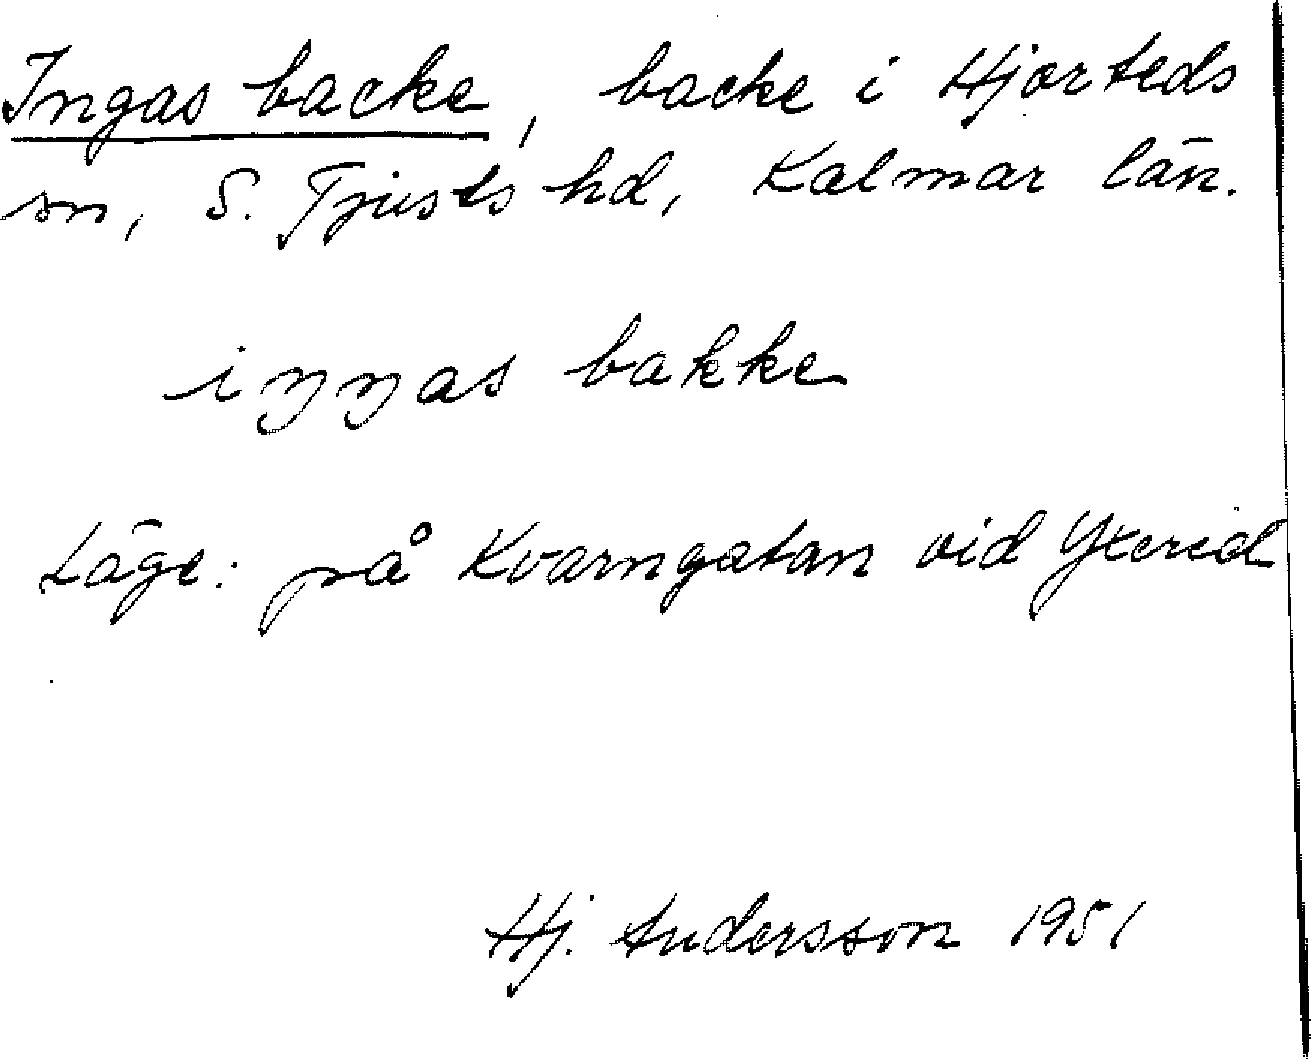 Ingas backe, backe i Hjorteds
sn, S. Tjusts hd, Kalmar län.
iŋŋas bakke
Läge: på Kvarngatan vid Ykered
Hj. Andersson 1951